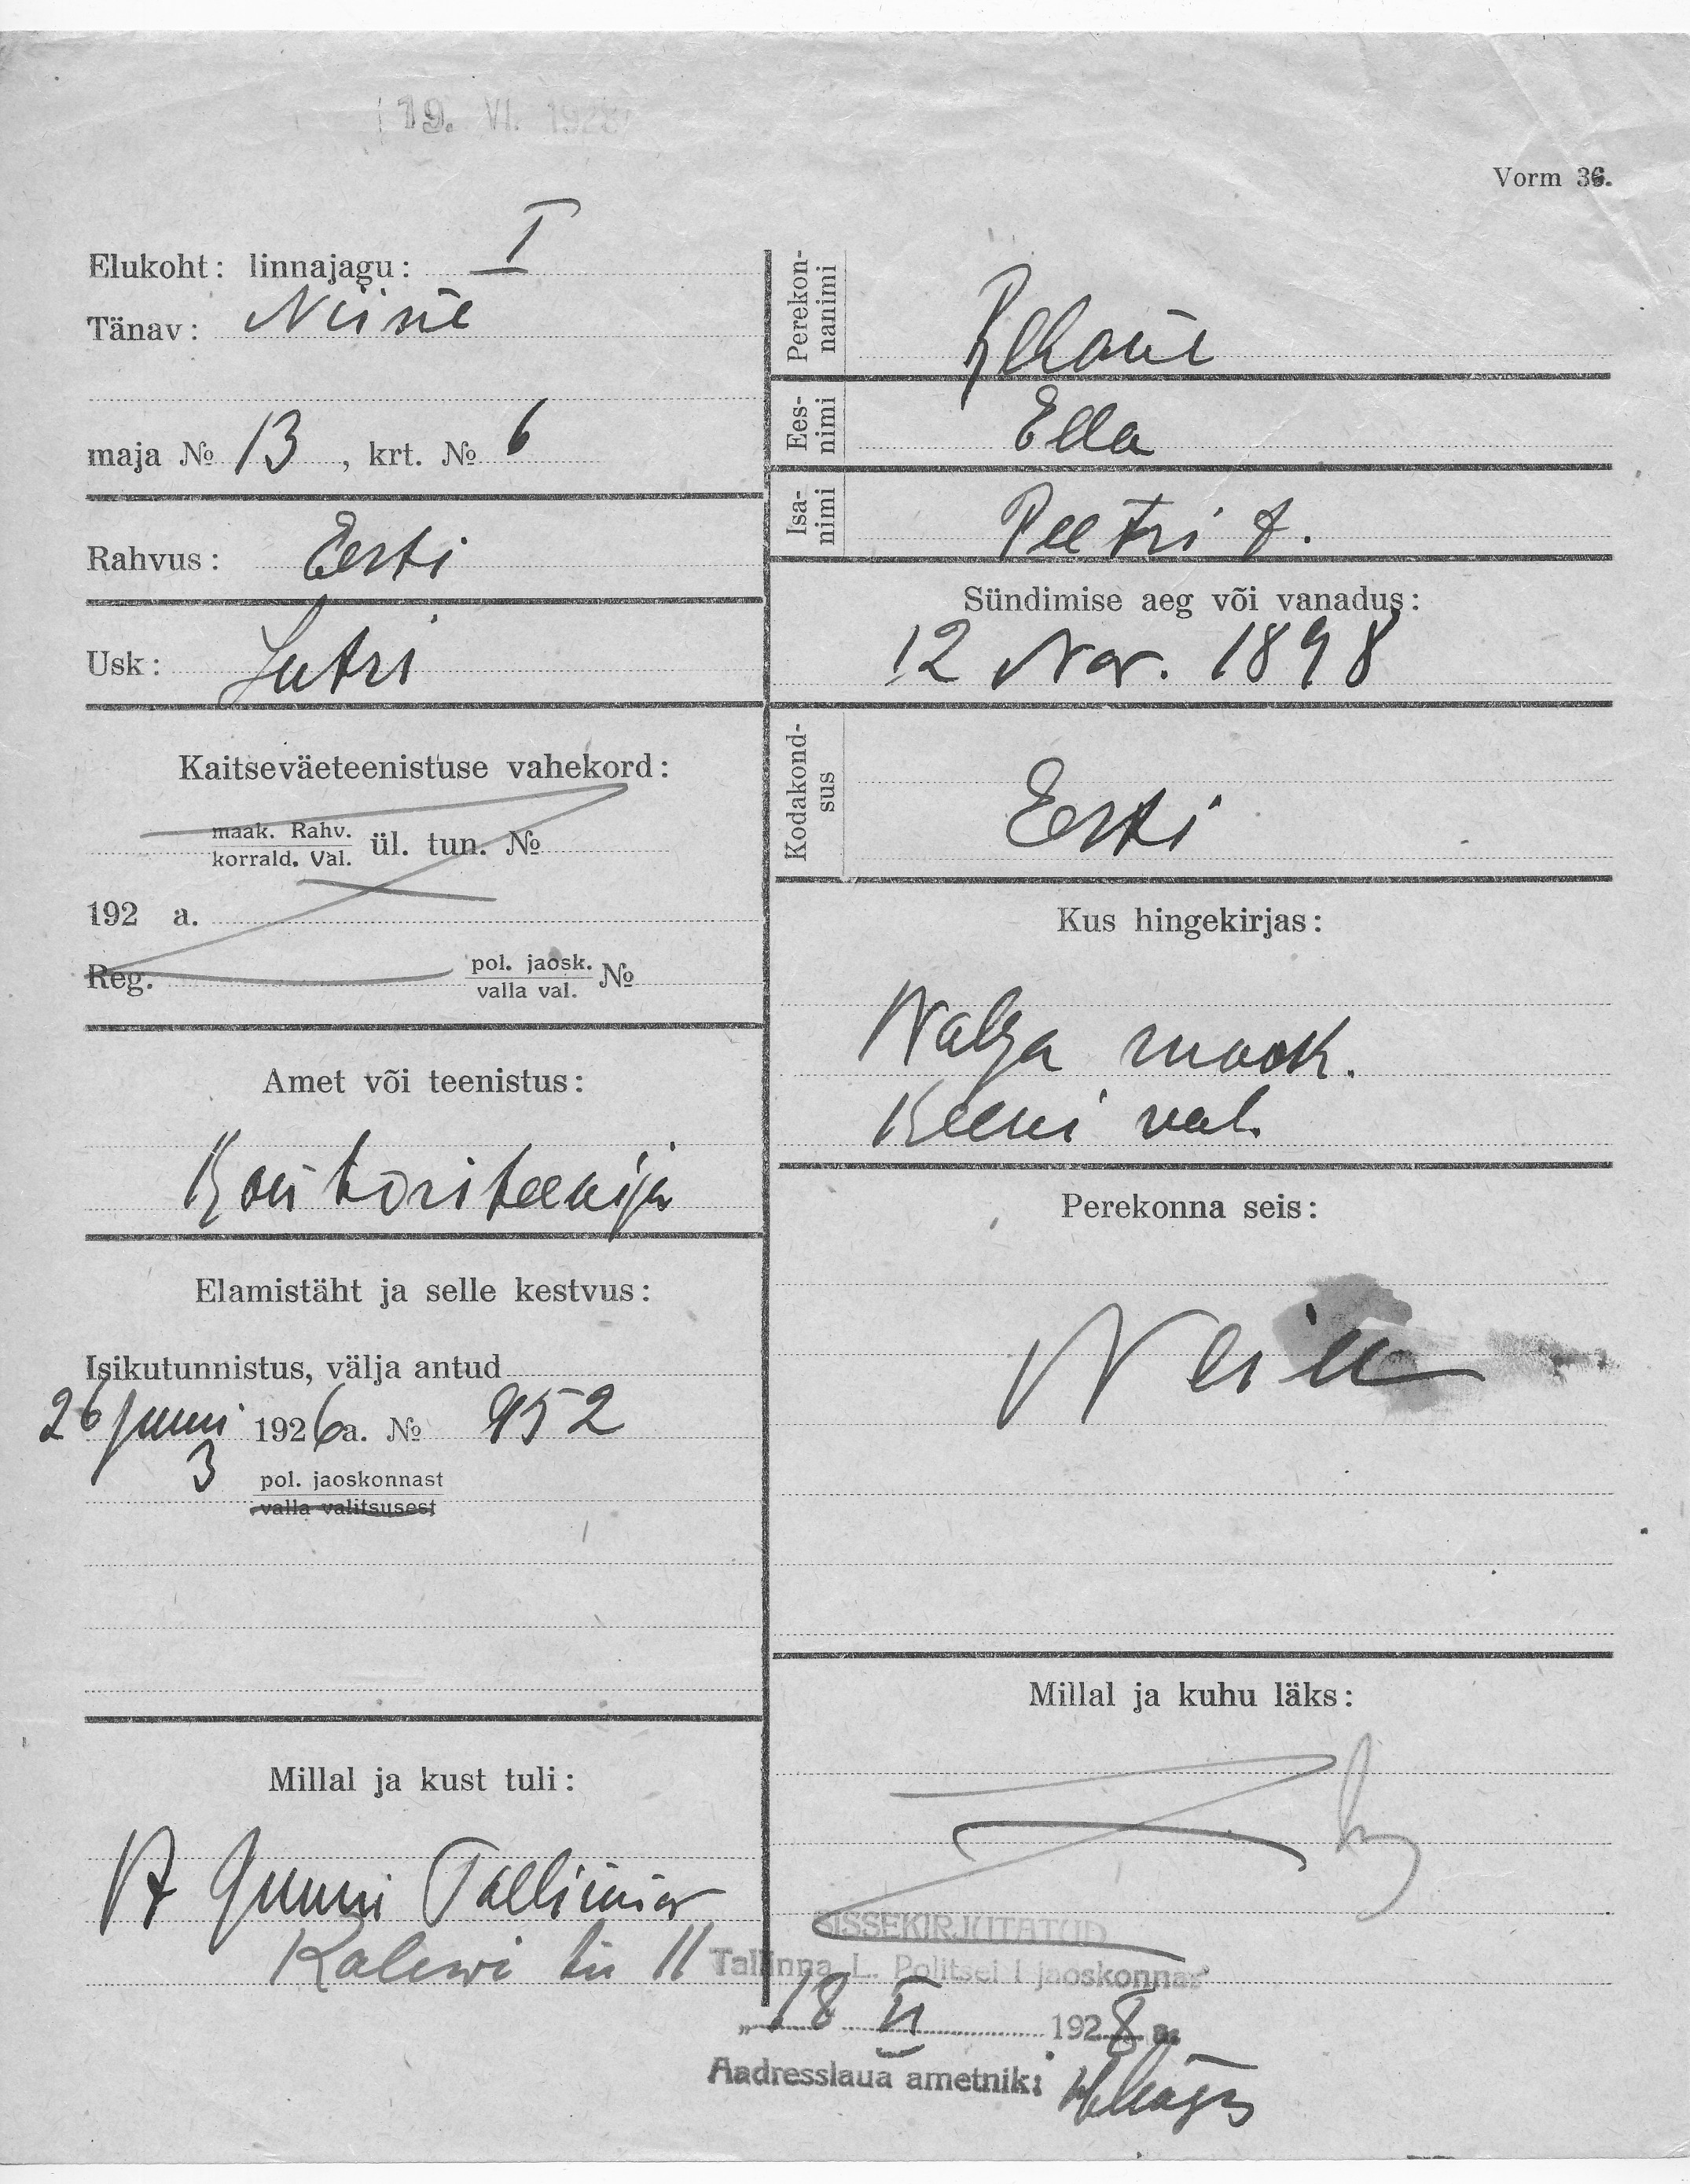 19. VI. 1928
Vorm 36.
Elukoht: linnajagu: I
Tänav: Niine
maja № 13, krt. № 6
Rahvus: Eesti
Usk: Lutri
Kaitseväeteenistuse vahekord:
maak. Rahv.
korrald. Val. ül. tun. №
192 a.
Reg. pol. jaosk.
valla val. №
Amet või teenistus:
Kontoriteenija
Elamistäht ja selle kestvus:
Isikutunnistus, välja antud
26 juuni 1926 a. № 952
3 pol. jaoskonnast
valla valitsusest
Millal ja kust tuli:
Juuni Tallinnas
Kalewi tn 11
Perekon-
nanimi
Ees-
nimi Ella
Isa-
nimi Peetri t.
Sündimise aeg või vanadus:
12 Nov. 1898
Kodakond-
sus Eesti
Kus hingekirjas:
Walga maak.
Keeni val.
Perekonna seis:
Neiu
Millal ja kuhu läks:
SISSEKIRJUTATUD
Tallinna L. Politsei I jaoskonnas
„18 VI 1928 a.
Aadresslaua ametnik: